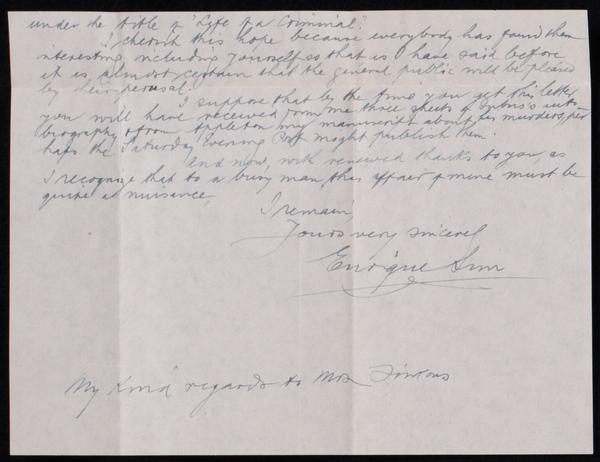 under the title of "Life of a Criminal".
I cherish this hope because everybody has found them
interesting, including yourself, so that as I have said before
it is almost certain that the general public will be pleased
by their perusal.
I suppose that by the time you get this letter
you will have received from me three sheets of auto-
biography & from Appleton my manuscript about his murders, per
haps the Saturday Evening Post might publish them.
And now, with renewed thanks to you, as
I recognize that to a busy man this affair of mine must be
quite a nuisance,
I remain,
Yours very sincerely
Enrique
My kind regards to Mrs